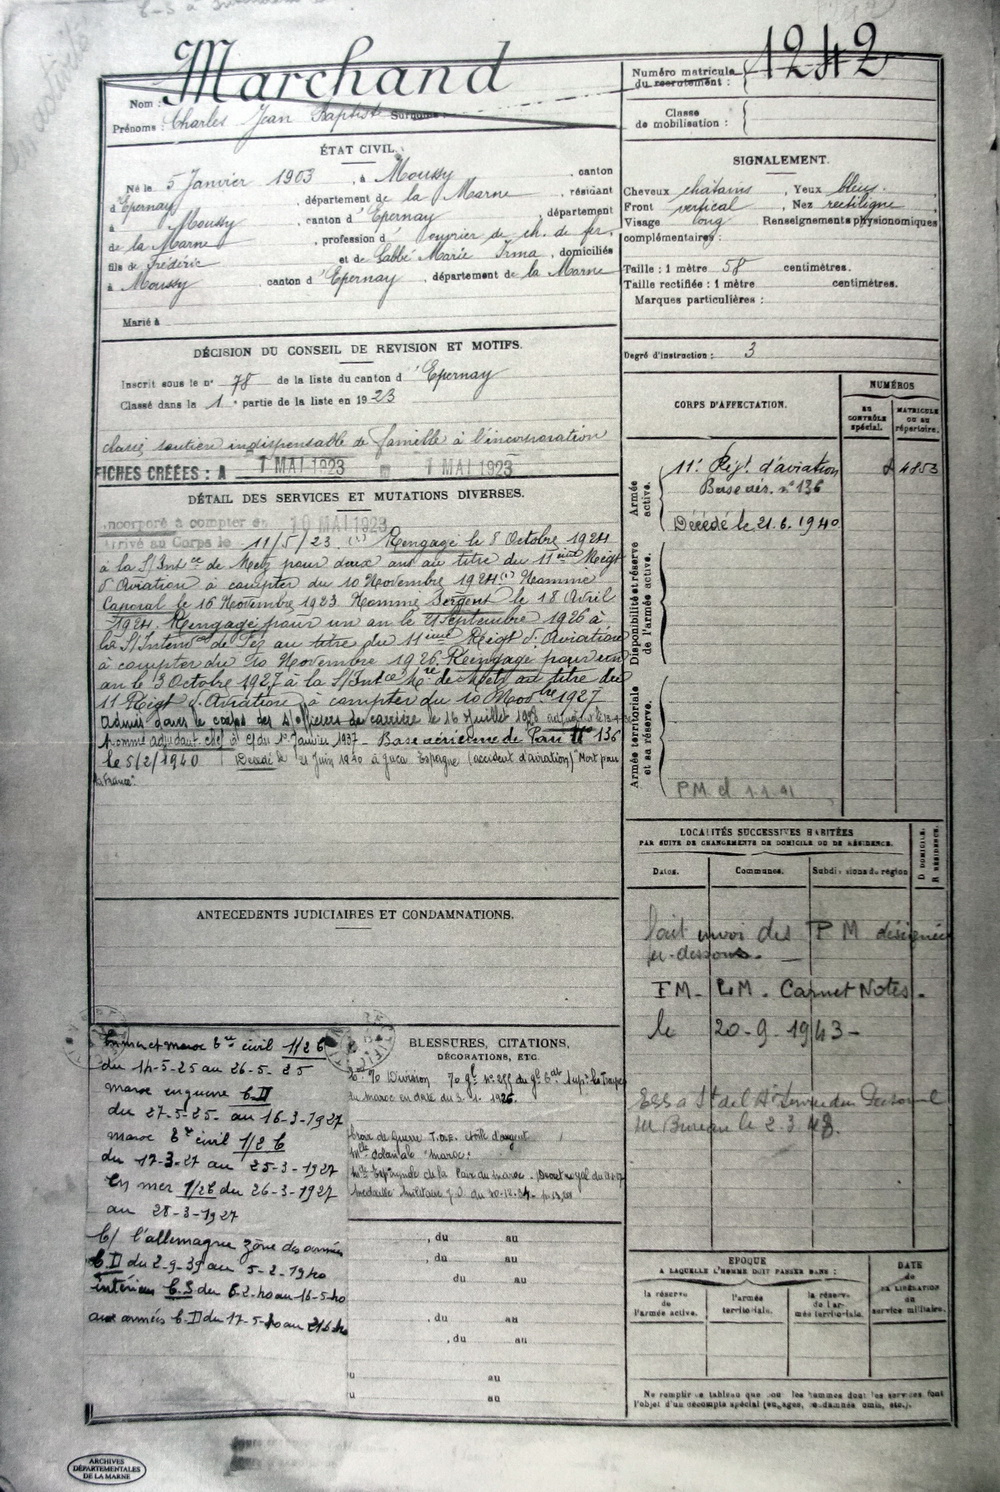 Marchand
Nom :
Prénoms : Charles Jean Baptiste Surnoms :
Numéro matricule du recrutement : 1242
Classe de mobilisation :
ÉTAT CIVIL.
Né le 5 Janvier 1903, à Moussy, canton
d'Epernay, département de la Marne, résidant
à Moussy, canton d'Epernay, département
de la Marne, profession d' ouvrier de ch. de fer,
fils de Frédéric et de Labbé Marie Irma, domiciliés
à Moussy canton d'Epernay, département de la Marne
Marié à
SIGNALEMENT.
Cheveux chatains, Yeux bleus,
Front vertical, Nez rectiligne
Visage long Renseignements physionomiques
complémentaires :
Taille : 1 mètre 58 centimètres.
Taille rectifiée : 1 mètre centimètres.
Marques particulières :
Degré d'instruction : 3
DÉCISION DU CONSEIL DE REVISION ET MOTIFS.
Inscrit sous le n° 78 de la liste du canton d'Epernay
Classé dans la 1e partie de la liste en 1923
classé soutien indispensable de famille à l'incorporation
FICHES CRÉÉES : A 1 MAI 1923 1 MAI 1923
DÉTAIL DES SERVICES ET MUTATIONS DIVERSES.
Incorporé à compter du 10 MAI 1923
Arrivé au Corps le 11/5/23 (1) Rengagé le 8 Octobre 1924
à la S/Int ce de Metz pour deux ans au titre du 11ième Régt
d'Aviation à compter du 10 Novembre 1924 (1) Nommé
Caporal le 16 Novembre 1923 Nommé Sergent le 18 Avril
1924. Rengagé pour un an le Septembre 1926 à
la S/Intendce de Fez au titre du 11ième Régt d'Aviation
à compter du 10 Novembre 1926. Rengagé pour un
an le 3 Octobre 1927 à la S/Intce Mre de Metz au titre du
11 Régt d'Aviation à compter du 10 Novbre 1927
Admis dans le corps des S/officiers de carrière le 16 Juillet 1928
Nommé adjudant chef à c/ du 1er Janvier 1937 - Base aérienne de Pau N° 136
le 5/2/1940 Décédé le 21 Juin 1940 à Jaca Espagne (accident d'aviation) "Mort pour
la France".
CORPS D'AFFECTATION.
NUMÉROS
AU CONTRÔLE spécial.
MATRICULE OU AU répertoire.
Armée active.
11e Régt. d'aviation 4853
Base aér. n° 136
Décédé le 21.6.1940
Disponibilité et réserve de l'armée active.
Armée territoriale et sa réserve.
P.M. d 1.1.41
LOCALITÉS SUCCESSIVES HABITÉES
PAR SUITE DE CHANGEMENTS DE DOMICILE OU DE RÉSIDENCE.
D. DOMICILE. R. RÉSIDENCE.
Dates. Communes. Subdivisions de région
Fait envoi des P M désignées
ci-dessous. —
FM - LM. Carnet Notes -
le 20-9-1943 -
Bureau le 2.3.48.
ANTECEDENTS JUDICIAIRES ET CONDAMNATIONS.
En mer et maroc civil 1/2 C
du 14-5-25 au 26-5-25
maroc en guerre C.D
du 27-5-25 au 16-3-1927
maroc civil 1/2 C
du 17-3-27 au 25-3-1927
En mer 1/2 C du 26-3-1927
au 28-3-1927
C/ l'allemagne zône des armées
C.D du 2-9-39 au 5-2-1940
intérieur C.S du 6-2-40 au 16-5-40
aux armées C.D du 17-5-40 au 21-6-40
BLESSURES, CITATIONS,
DÉCORATIONS, ETC
du Maroc en date du 3.1.1926.
Croix de Guerre T.O.E. étoile d'argent
Mlle Coloniale "Maroc"
Médaille Militaire J.O. du 30-12-34
, du au
, du au
du au
, du au
, du au
au
au
EPOQUE
A LAQUELLE L'HOMME DOIT PASSER DANS :
la réserve de l'armée active.
l'armée territoriale.
la réserve de l'armée territoriale.
DATE de LA LIBÉRATION du service militaire.
Ne remplir ce tableau que pour les hommes dont les services font
l'objet d'un décompte spécial (engagés, condamnés, omis, etc.).
ARCHIVES
DÉPARTEMENTALES
DE LA MARNE